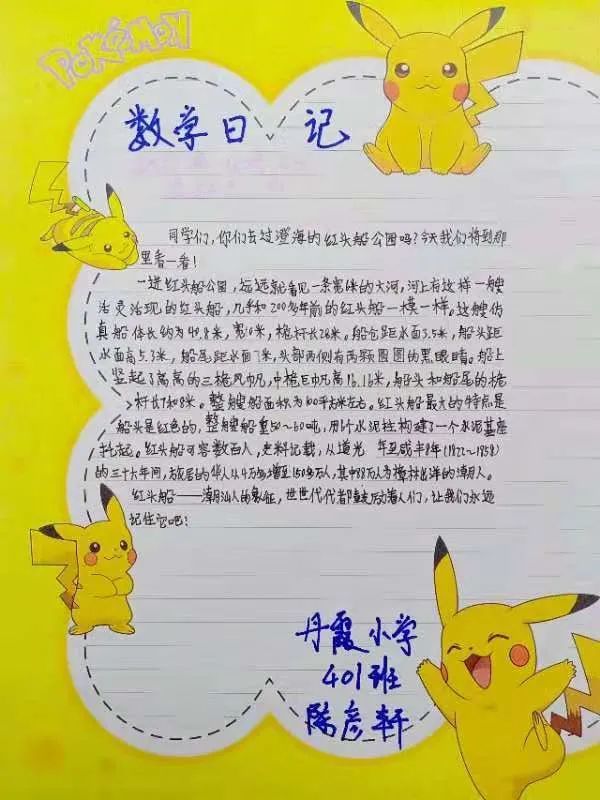 POKÉMON
数学日记
同学们，你们去过澄海的红头船公园吗？今天我们将到那
里看一看！
一进红头船公园，远远就看见一条宽
的大河，河上有这样一艘
活灵活现的红头船，几乎和200多年前的红头船一模一样。这艘仿
真船体长约为49.8米，宽10米，桅杆长28米。船仓距水面3.5米，船头距
水面高5.3米，船尾距水面7米，头部两侧有两颗圆圆的黑眼睛。船上
竖起了高高的三桅风帆，中桅巨帆高16.16米，船头和船尾的桅
杆长7和8米。整艘船面积为100平方米左右。红头船最大的特点是
船头是红色的，整艘船重50～60吨，用
个水泥柱构建了一个水泥基座
托起。红头船可容数百人，史料记载，从道光
年至咸丰8年(1822～1858)
的三十六年间，旅居的华人从4万多增至150多万人，其中88万人为樟林出洋的潮汕人。
红头船——潮汕人的象征，世世代代都鼓励着人们，让我们永远
记住它吧！
丹霞小学
401班
陈彦轩